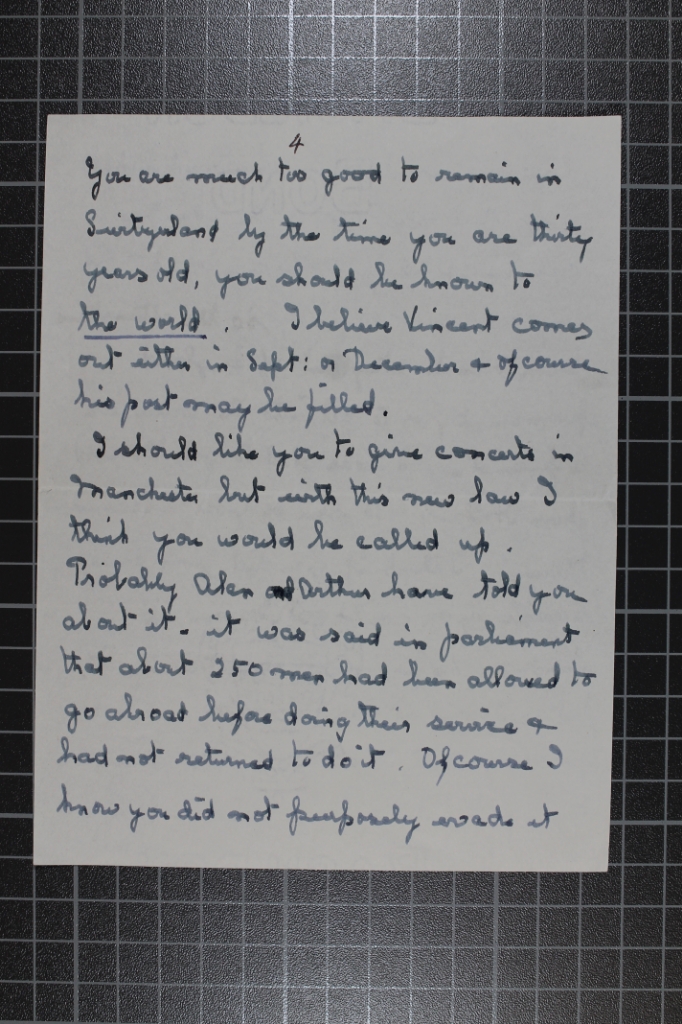 4
You are much too good to remain in
Switzerland by the time you are thirty
years old, you should be known to
the world. I believe Vincent comes
out either in Sept: or December & of course
his post may be filled.
I should like you to give concerts in
Manchester but with this new law I
think you would be called up.
Probably Alan and Arthur have told you
about it. it was said in parliament
that about 250 men had been allowed to
go abroad before doing their service &
had not returned to do it. Of course I
know you did not purposely evade it